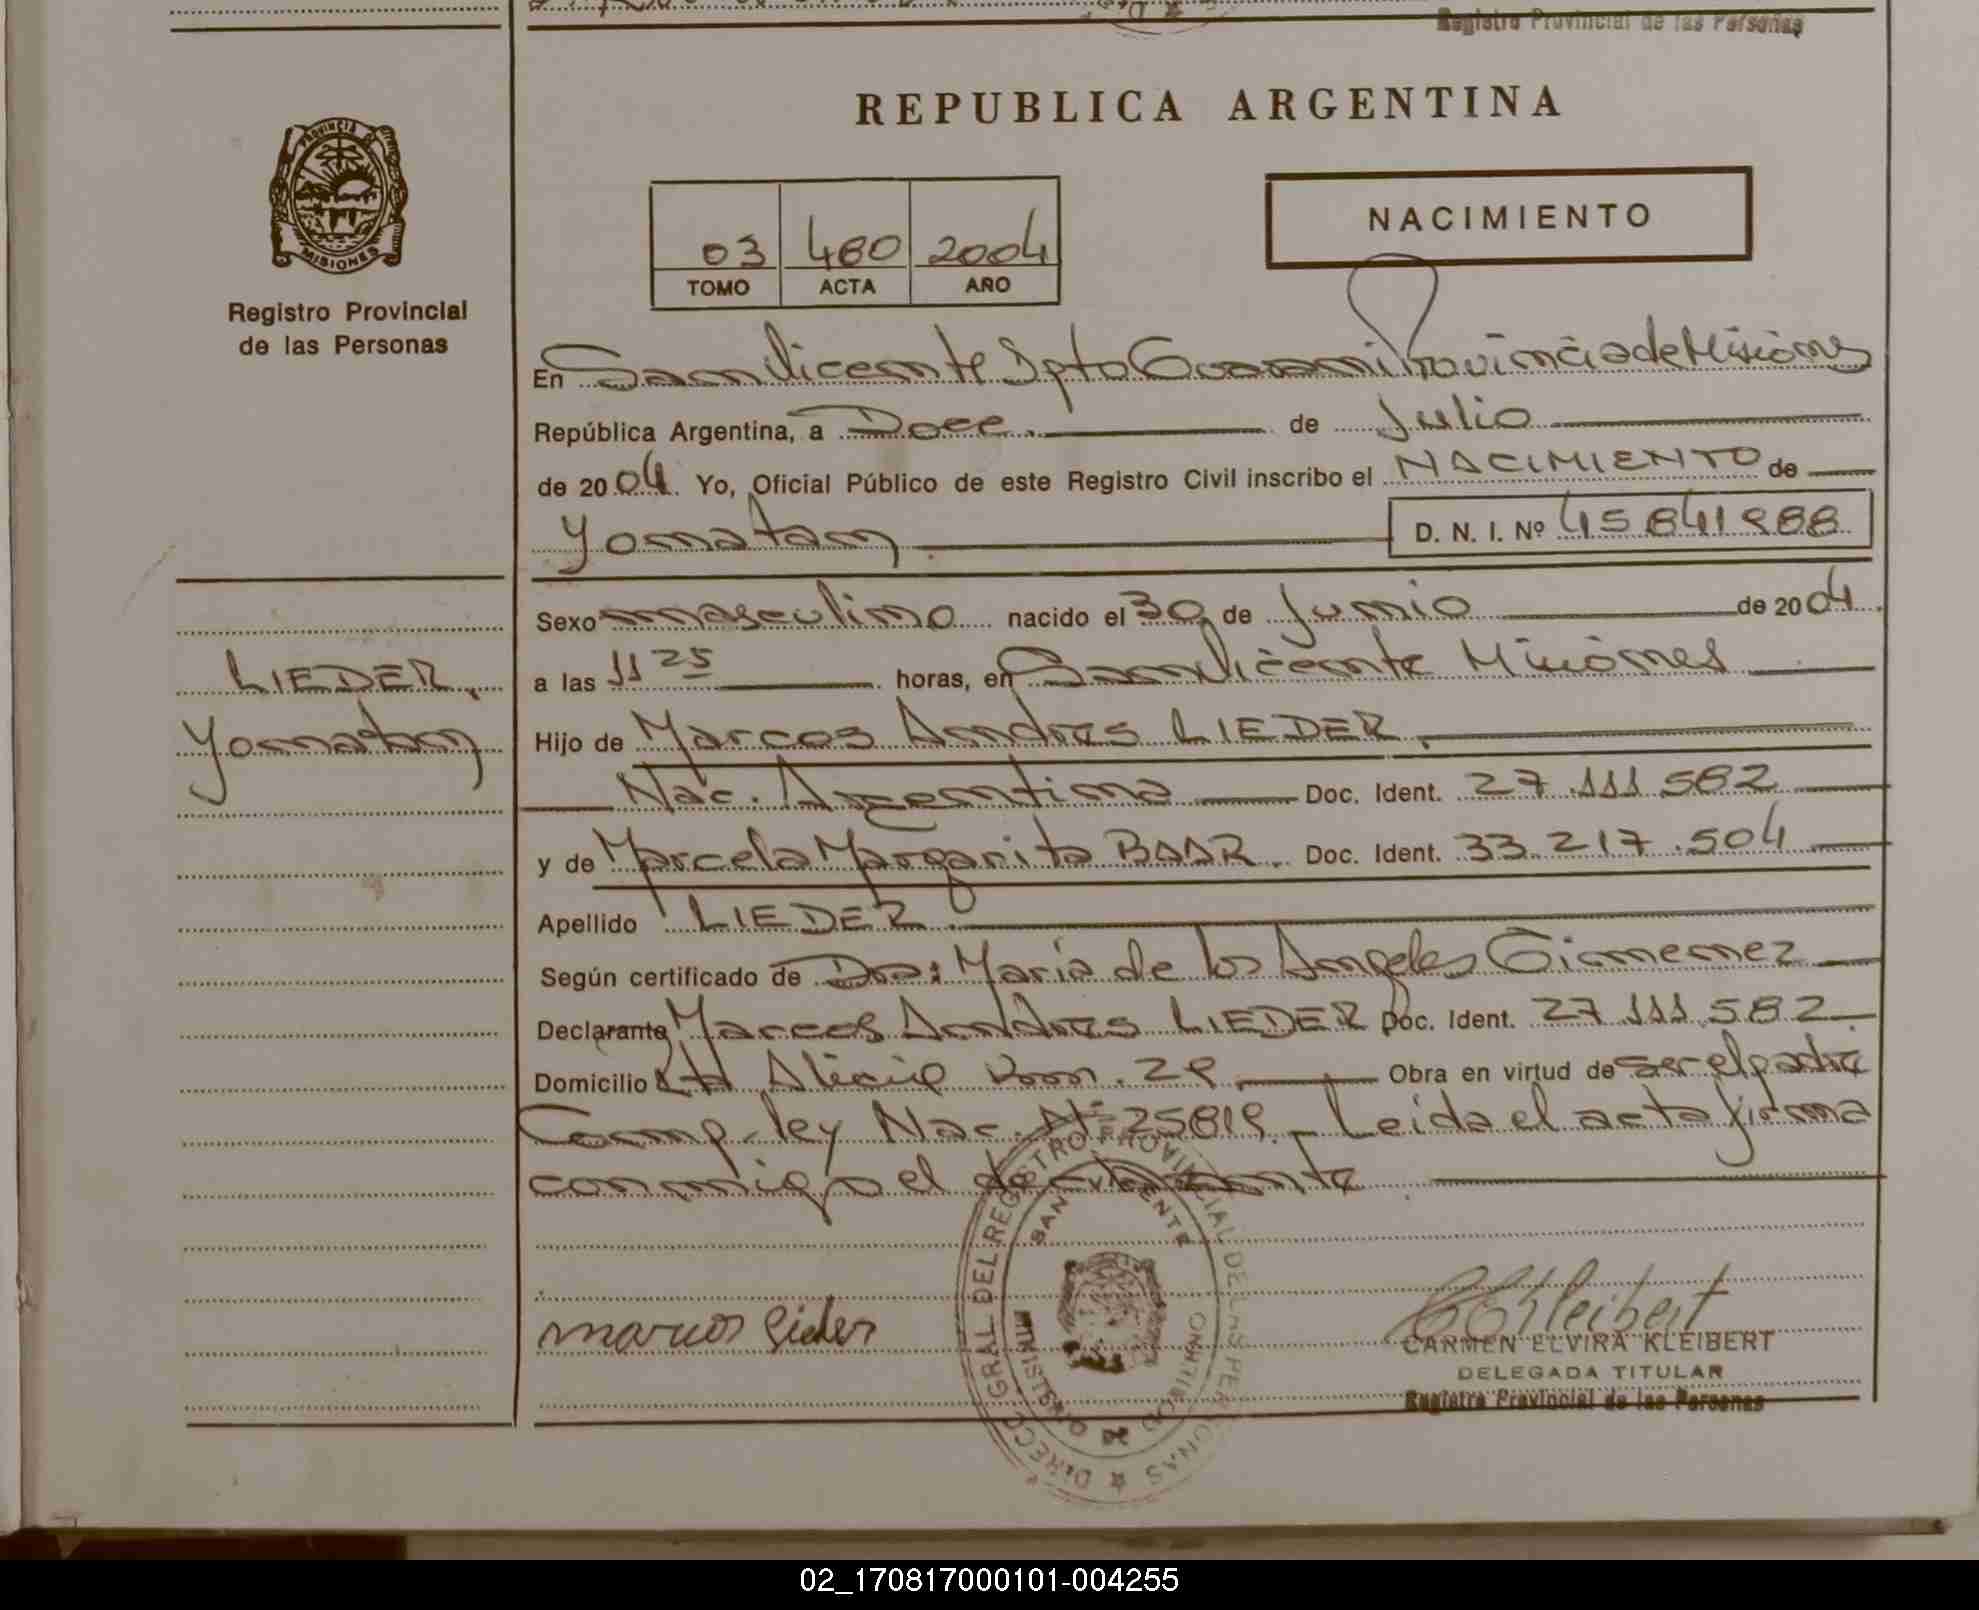 Registro Provincial de las Personas
REPUBLICA ARGENTINA
PROVINCIA DE
MISIONES
Registro Provincial
de las Personas
NACIMIENTO
03 480 2004
TOMO ACTA AÑO
En San Vicente Dpto Guarani Provincia de Misiones
República Argentina, a Doce.- de Julio
de 2004. Yo, Oficial Público de este Registro Civil inscribo el NACIMIENTO de
Yonatan D. N. I. Nº 45 841 988
Sexo masculino nacido el 30 de Junio de 2004.
LIEDER,
a las 11 25 horas, en San Vicente Misiones
Yonatan
Hijo de Marcos Andres LIEDER.
Nac. Argentina Doc. Ident. 27.111.582
y de Marcela Margarita BAAR. Doc. Ident. 33.217.504
Apellido LIEDER.
Según certificado de Dra: Maria de los Angeles Gimenez
Declarante Marcos Andres LIEDER Doc. Ident. 27.111.582
Domicilio Alicia km. 29. Obra en virtud de ser el padre
Comp. ley Nac. Nº 25819.- Leida el acta firma
conmigo el declarante
DIREC. GRAL DEL REGISTRO PROVINCIAL DE LAS PERSONAS
SAN VICENTE
MINISTERIO DE GOBIERNO
marcos Lieder
CKleibert
CARMEN ELVIRA KLEIBERT
DELEGADA TITULAR
Registro Provincial de las Personas
02_170817000101-004255